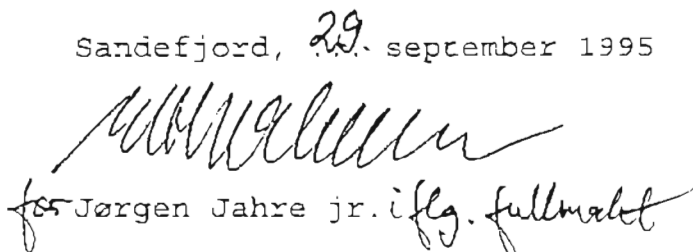 Sandefjord, 29. september 1995
for Jørgen Jahre jr. iflg. fullmakt